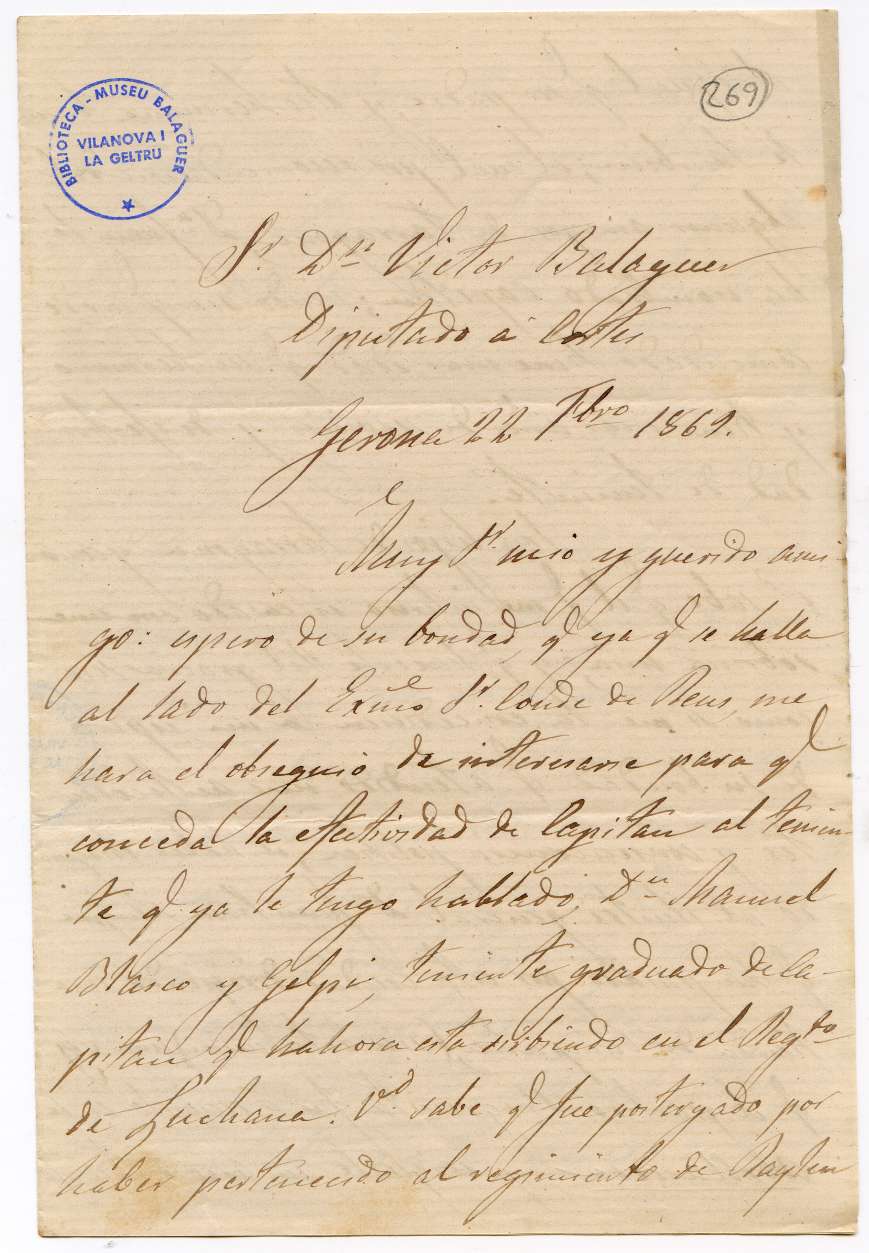 269
BIBLIOTECA - MUSEU BALAGUER
VILANOVA I
LA GELTRU
Sr. Dn Victor Balaguer
Diputado á Cortes
Gerona 22 Fbro 1869.
Muy Sr mio y querido ami-
go: espero de su bondad, q ya q se halla
al lado del Exmo Sr. Conde de Reus, me
hara el obsequio de interesarse para q
conceda la efectividad de Capitan al tenien-
te q ya le tengo hablado, Dn Manuel
Blasco y Gelpi, teniente graduado de Ca-
pitan q hahora esta sirbiendo en el Regto
de Luchana. Vd sabe q fue postergado por
haber pertenecido al regimiento de Baylen